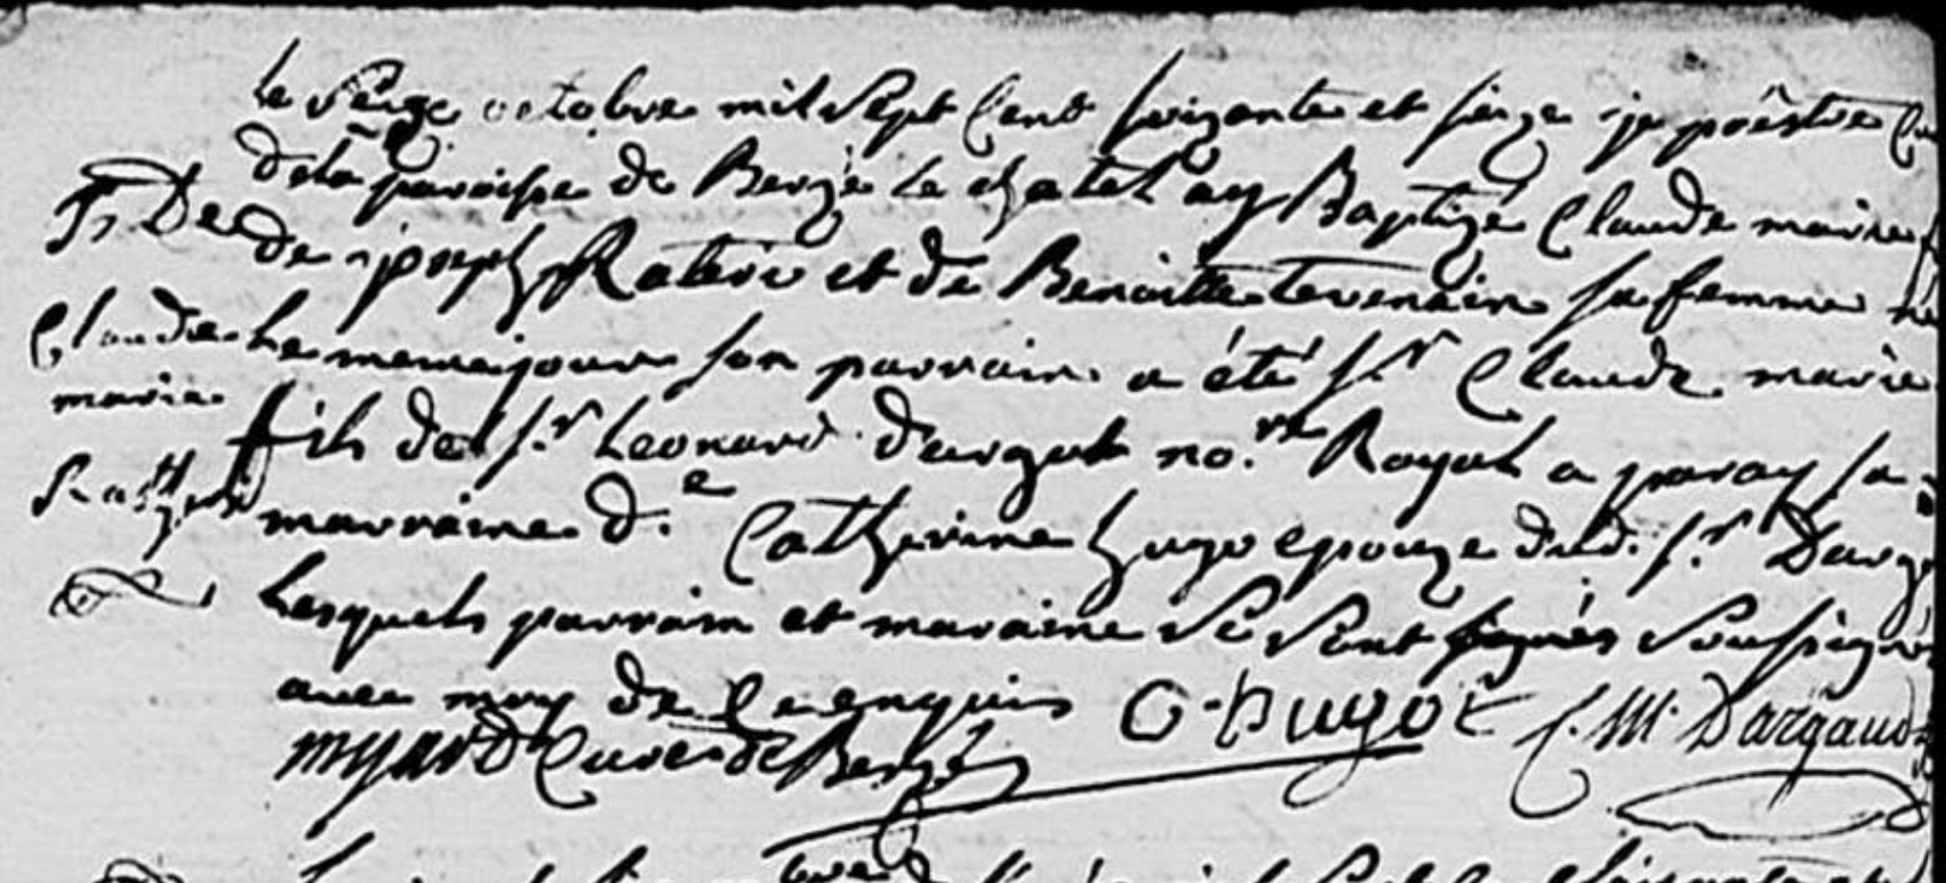 le Seize octobre mil Sept Cent soizante et seize je prêstre Cu
dela paroisse de Berzé le chatel ay Baptizé Claude marie f
Bp. De
de joseph Raterie et de Benoitte tevenein sa femme né
Claude
Le meme jour son parrain a été s.r Claude marie
marie
fils de s.r Leonard dargot no.re Royal a paray sa
Ratterie
marraine d.e Catherine hugo epouze dud. s.r Dargo
Lesquels parrain et maraine Se Sont signés Soussigné
avec moy de ce enquis C. hugot C. M. Dargaud
myard Curé de Berzé